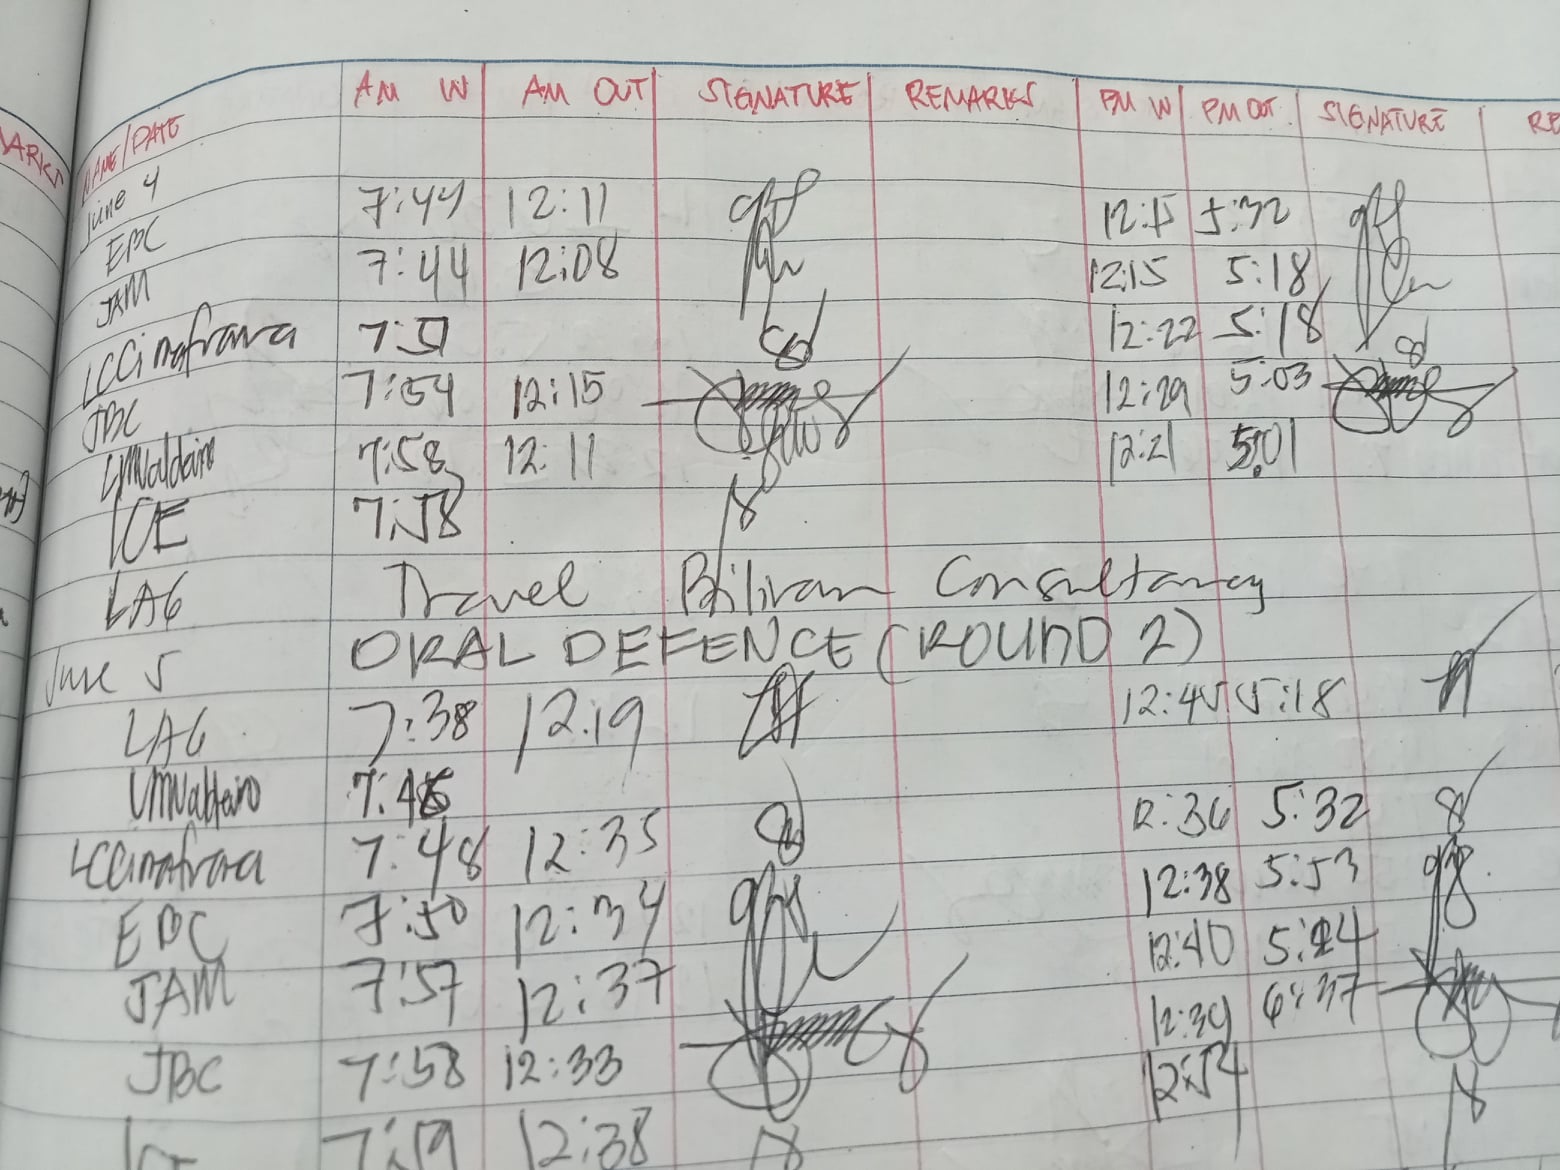 ARKS
NAME/DATE AM IN AM OUT SIGNATURE REMARKS PM IN PM OUT SIGNATURE RE
June 4
EBC 7:44 12:11 12:15 5:32
JAM 7:44 12:08 12:15 5:18
LCCinafrana 7:51 12:22 5:18
JBC 7:54 12:15 12:29 5:03
LMValdeiro 7:58 12:11 12:21 5:01
ICE 7:58
LAG Travel Biliran Consultancy
June 5 ORAL DEFENCE (ROUND 2)
LAG 7:38 12:19 12:45 5:18
LMValdeiro
LCCinafrana 7:48 12:35 12:36 5:32
EBC 7:50 12:34 12:38 5:53
JAM 7:57 12:37 12:40 5:24
JBC 7:58 12:33 12:39
7:59 12:38 12:54